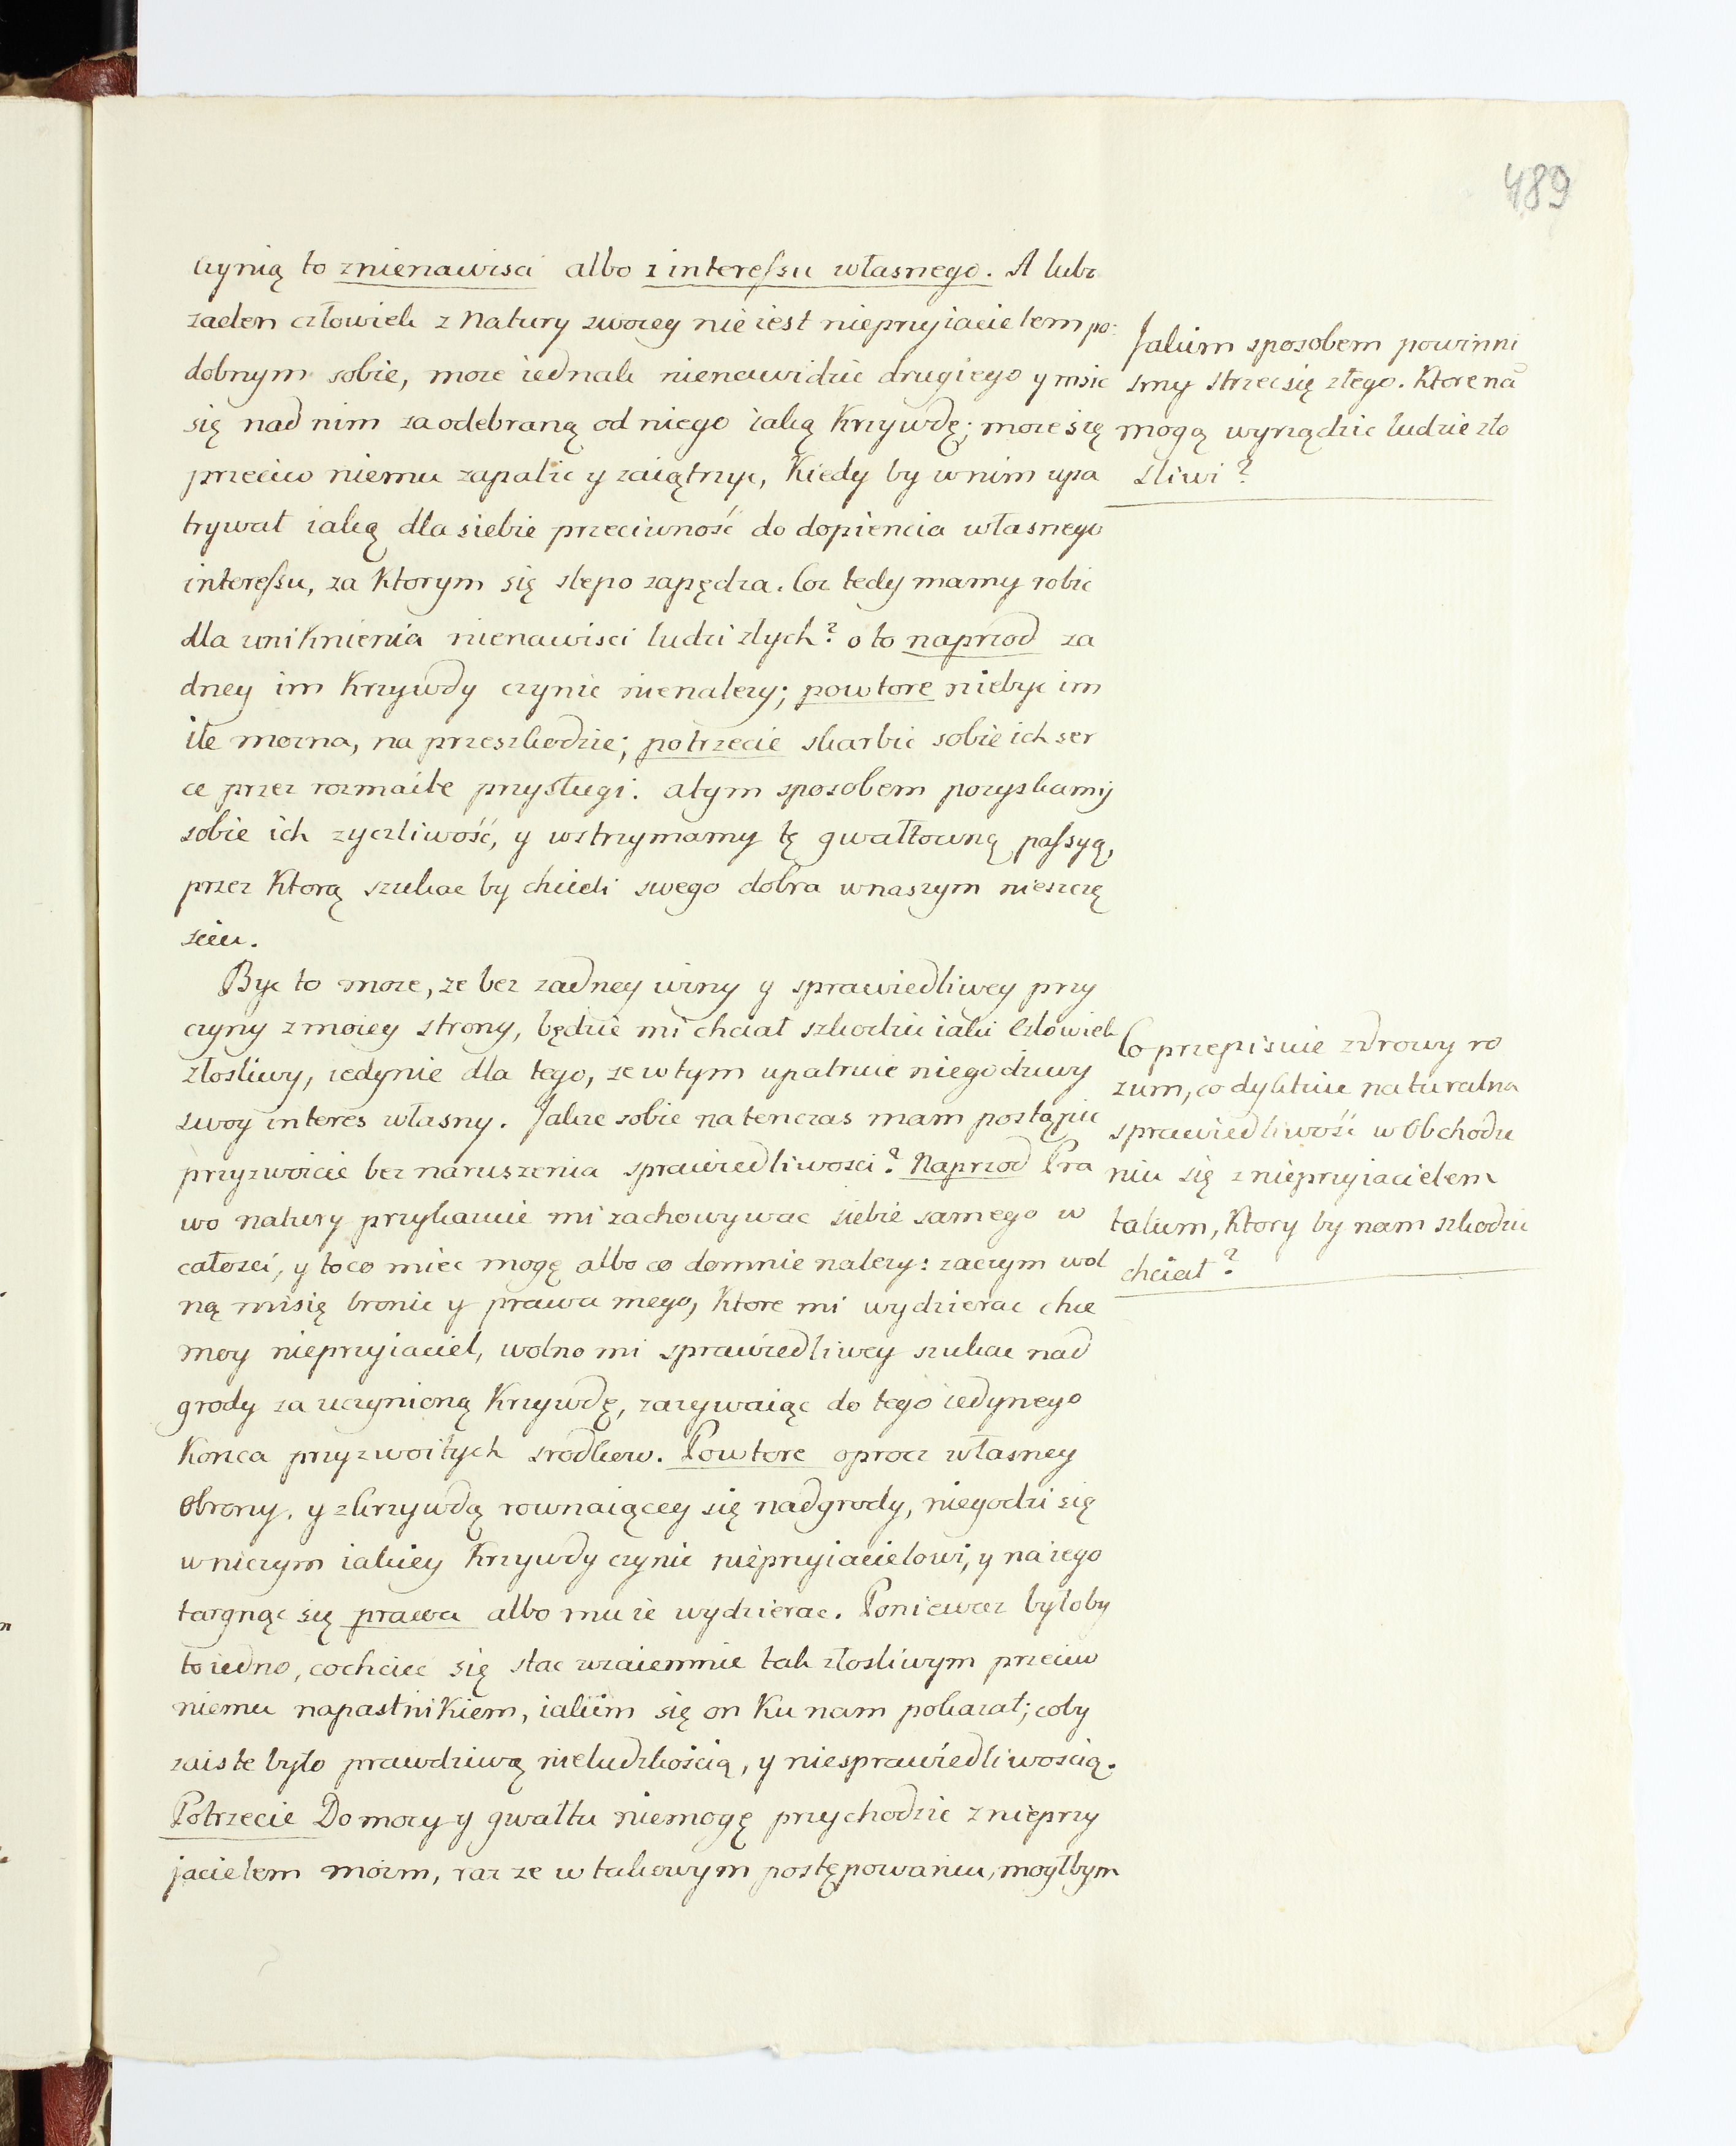 489
czynią to znienawisci albo z interessu własnego. A lubo
zaden człowiek z Natury swoiey nie iest nieprzyiacielem po-
dobnym sobie, moze iednak nienawidzic drugiego y msic
się nad nim za odebraną od niego iaką Krzywdę; moze się
przeciw niemu zapalic y zaiątrzyc, Kiedy by w nim upa
trywał iaką dla siebie przeciwność do dopiencia własnego
interessu, za Ktorym się slepo zapędza. Coz tedy mamy robic
dla uniknienia nienawisci ludzi zlych? oto naprzod za
dney im Krzywdy czynic nienalezy; powtore niebyc im
ile mozna, na przeszkodzie; potrzecie skarbic sobie ich ser
ce przez rozmaite przysługi. a tym sposobem pozyskamy
sobie ich zyczliwość, y wstrzymamy tę gwałtowną passyą,
przez Ktorą szukac by chcieli swego dobra w naszym nieszczę
sciu.
Byc to moze, ze bez zadney winy y sprawiedliwey przy
czyny z moiey strony, będzie mi chciał szkodzic iaki Człowiek
złosliwy, iedynie dla tego, ze w tym upatruie niegodziwy
swoy interes własny. Jakze sobie natenczas mam postąpic
przyzwoicie bez naruszenia sprawiedliwosci? Naprzod Pra
wo natury przykazuie mi zachowywac siebie samego w
całosci, y to co miec mogę albo co domnie nalezy: zaczym wol
ną mi się bronic y prawa mego, Ktore mi wydzierac chce
moy nieprzyiaciel, wolno mi sprawiedliwey szukac nad
grody za uczynioną Krzywdę, zazywaiąc do tego iedynego
Konca przyzwoitych srodkow. Powtore oprocz własney
Obrony, y zkrzywdą rownaiącey się nadgrody, niegodzi się
w niczym iakiey Krzywdy czynic nieprzyiacielowi, y na iego
targnąc się prawa albo mu ie wydzierac. Poniewaz byłoby
to iedno, co chciec się stac wzaiemnie tak złosliwym przeciw
niemu napastnikiem, iakiim się on Ku nam pokazał; coby
zaiste było prawdziwą nieludzkością, y niesprawiedliwoscią.
Potrzecie Do mocy y gwałtu niemogę przychodzic z nieprzy
jacielem moim, raz ze w takowym postępowaniu, mogłbym
Jakim sposobem powinni
smy strzec się złego. Ktore nã
mogą wyrządzic ludzie zło
sliwi?
Co przepisuie zdrowy ro
zum, co dyktuie naturalna
sprawiedliwość w Obchodze
niu się z nieprzyiacielem
takim, Ktory by nam szkodzic
chciał?